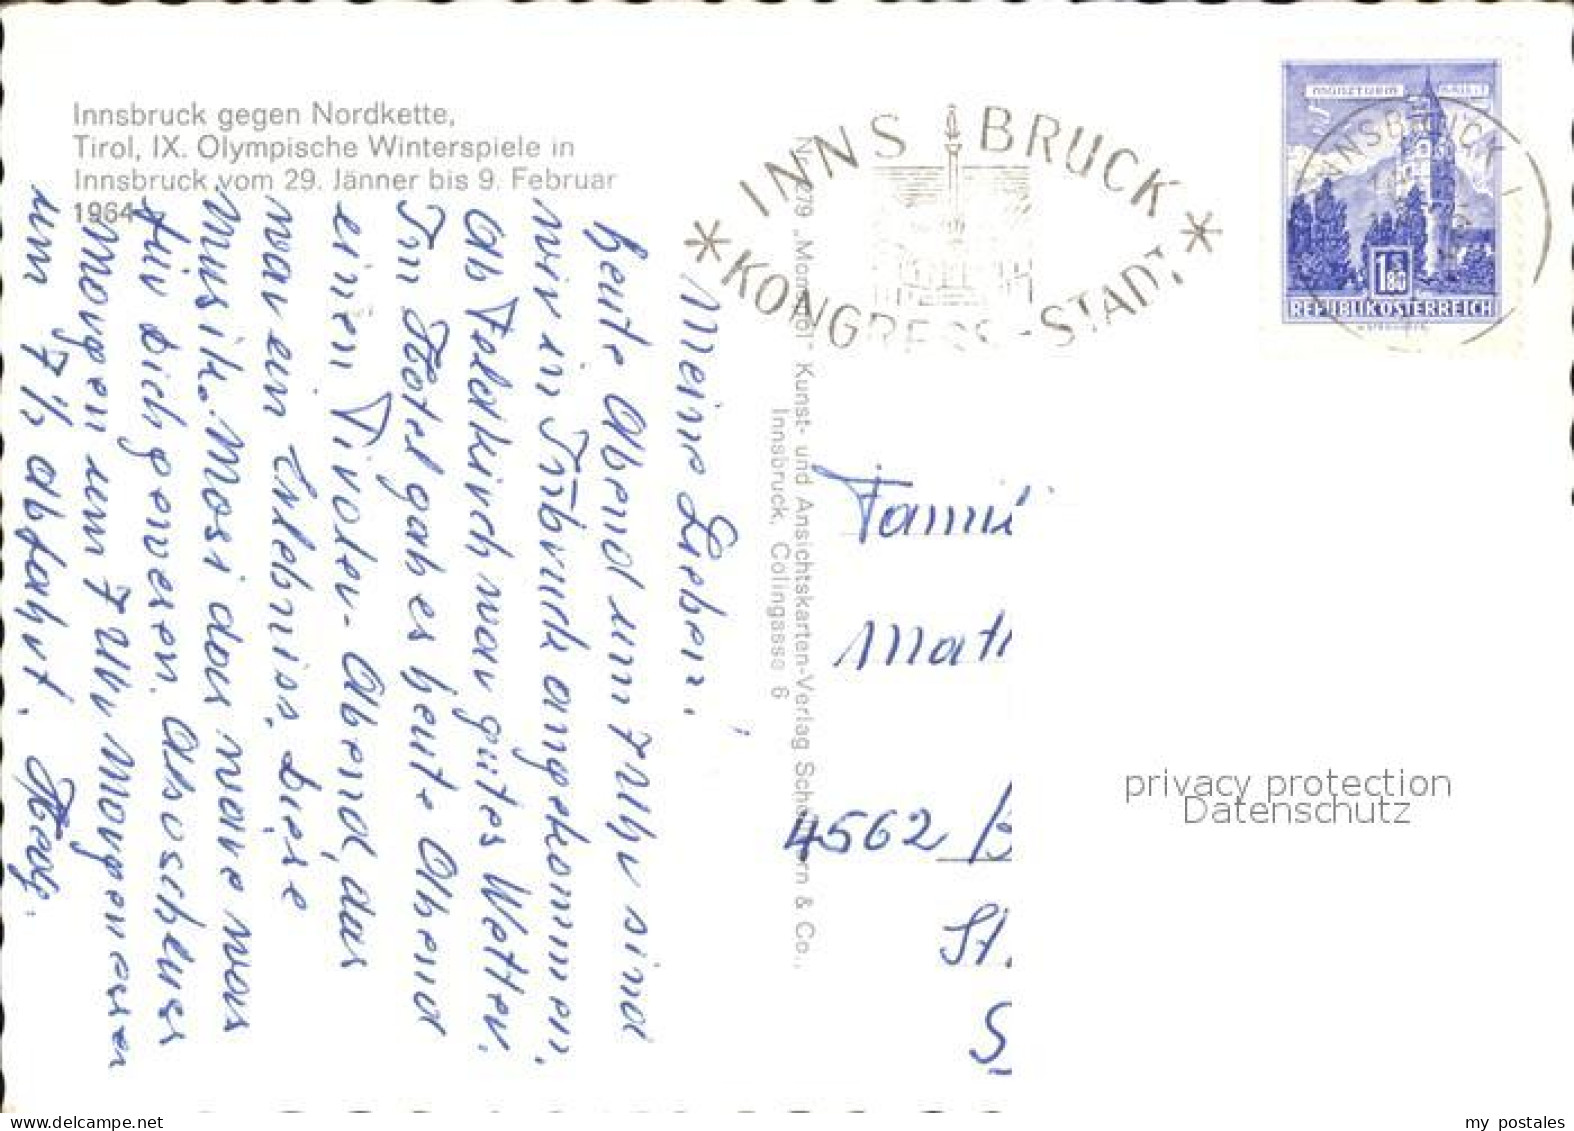 Innsbruck gegen Nordkette,
Tirol, IX. Olympische Winterspiele in
Innsbruck vom 29. Jänner bis 9. Februar
1964
INNSBRUCK
KONGRESS-STADT
MÜNZTURM HALL I.T.
S 1.80
REPUBLIK ÖSTERREICH
INNSBRUCK 1
Kunst- und Ansichtskarten-Verlag & Co.,
Innsbruck, Colingasse 6
Meine Lieben!
heute Abend um 7 Uhr sind
wir in Insbruck angekommen,
ab Feldkirch war gutes Wetter.
Im Hotel gab es heute Abend
einen Tiroler-Abend, das
war ein Erlebniss, diese
Musik. Mosi das wäre was
für dich gewesen.
Morgen um 7 Uhr Morgenessen
um 7½ abfahrt.
Famili
Math
4562 B
St.
S
privacy protection
Datenschutz
my postales
www.delcampe.net